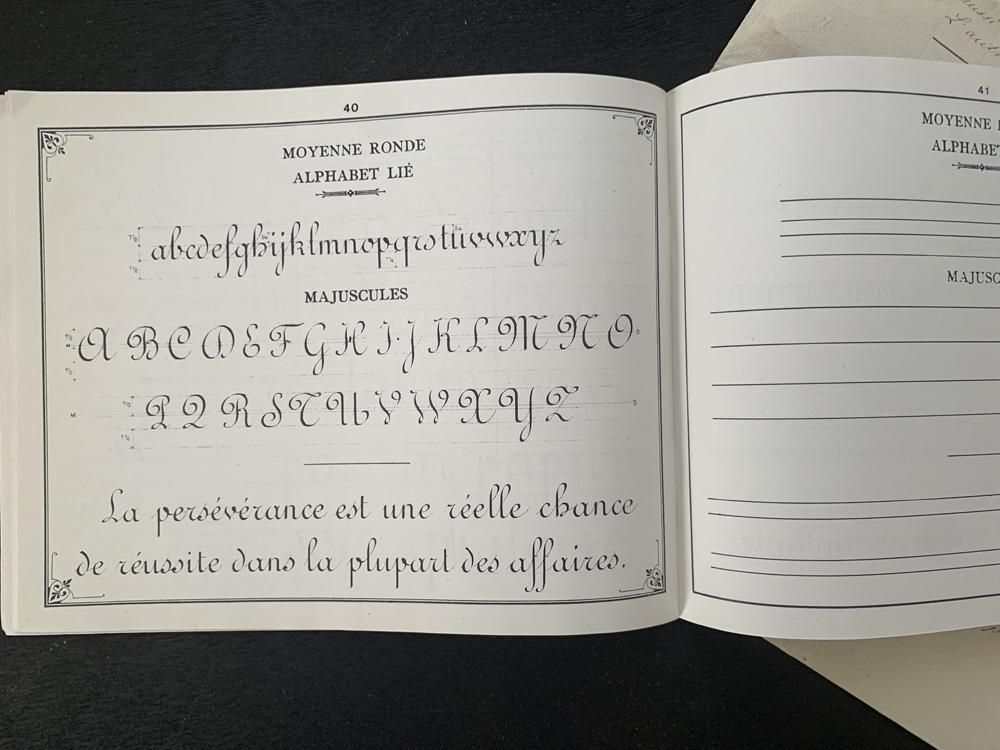 40
MOYENNE RONDE
ALPHABET LIÉ
abcdefghijklmnopqrstuvwxyz
MAJUSCULES
A B C D E F G H I J K L M N O
P Q R S T U V W X Y Z
La persévérance est une réelle chance
de réussite dans la plupart des affaires.
41
MOYENNE
ALPHABET
MAJUSC